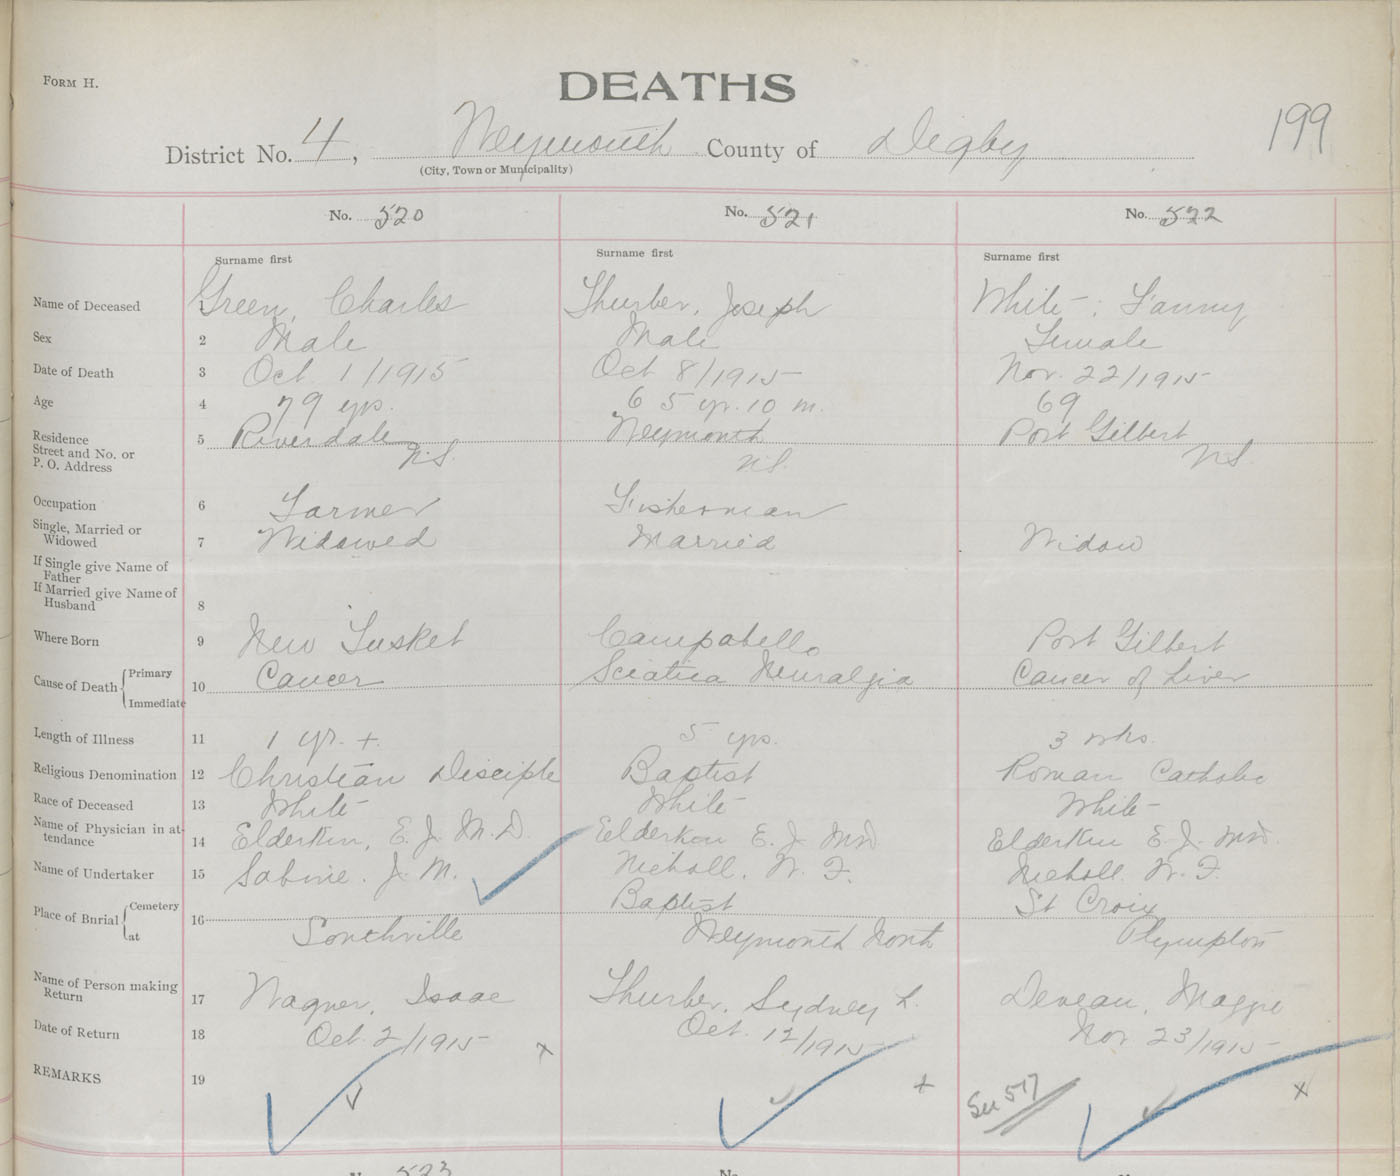 FORM H.
DEATHS
199
District No. 4, Weymouth County of Digby
(City, Town or Municipality)
No. 520 No. 521 No. 522
Surname first Surname first Surname first
Name of Deceased 1 Green, Charles Thurber, Joseph White, Fanny
Sex 2 Male Male Female
Date of Death 3 Oct 1/1915 Oct 8/1915 Nov. 22/1915
Age 4 79 yrs. 65 yr. 10 m. 69
Residence Street and No. or P. O. Address 5 Riverdale N.S. Weymouth N.S. Port Gilbert N.S.
Occupation 6 Farmer Fisherman
Single, Married or Widowed 7 Widowed Married Widow
If Single give Name of Father
If Married give Name of Husband 8
Where Born 9 New Tusket Campobello Port Gilbert
Cause of Death { Primary Immediate 10 Cancer Sciatica Neuralgia Cancer of Liver
Length of Illness 11 1 yr. + 5 yrs. 3 wks.
Religious Denomination 12 Christian Disciple Baptist Roman Catholic
Race of Deceased 13 White White White
Name of Physician in attendance 14 Elderkin, E. J. M.D. Elderkin E. J. M.D. Elderkin E. J. M.D.
Name of Undertaker 15 Sabine. J. M. Nicholl. W. F. Nicholl. W. F.
Place of Burial { Cemetery 16 Baptist St Croix
at Southville Weymouth North Plympton
Name of Person making Return 17 Wagner, Isaac Thurber, Sydney L. Deveau, Maggie
Date of Return 18 Oct. 2/1915 Oct. 12/1915 Nov 23/1915
REMARKS 19 See 517
No. 523 No.